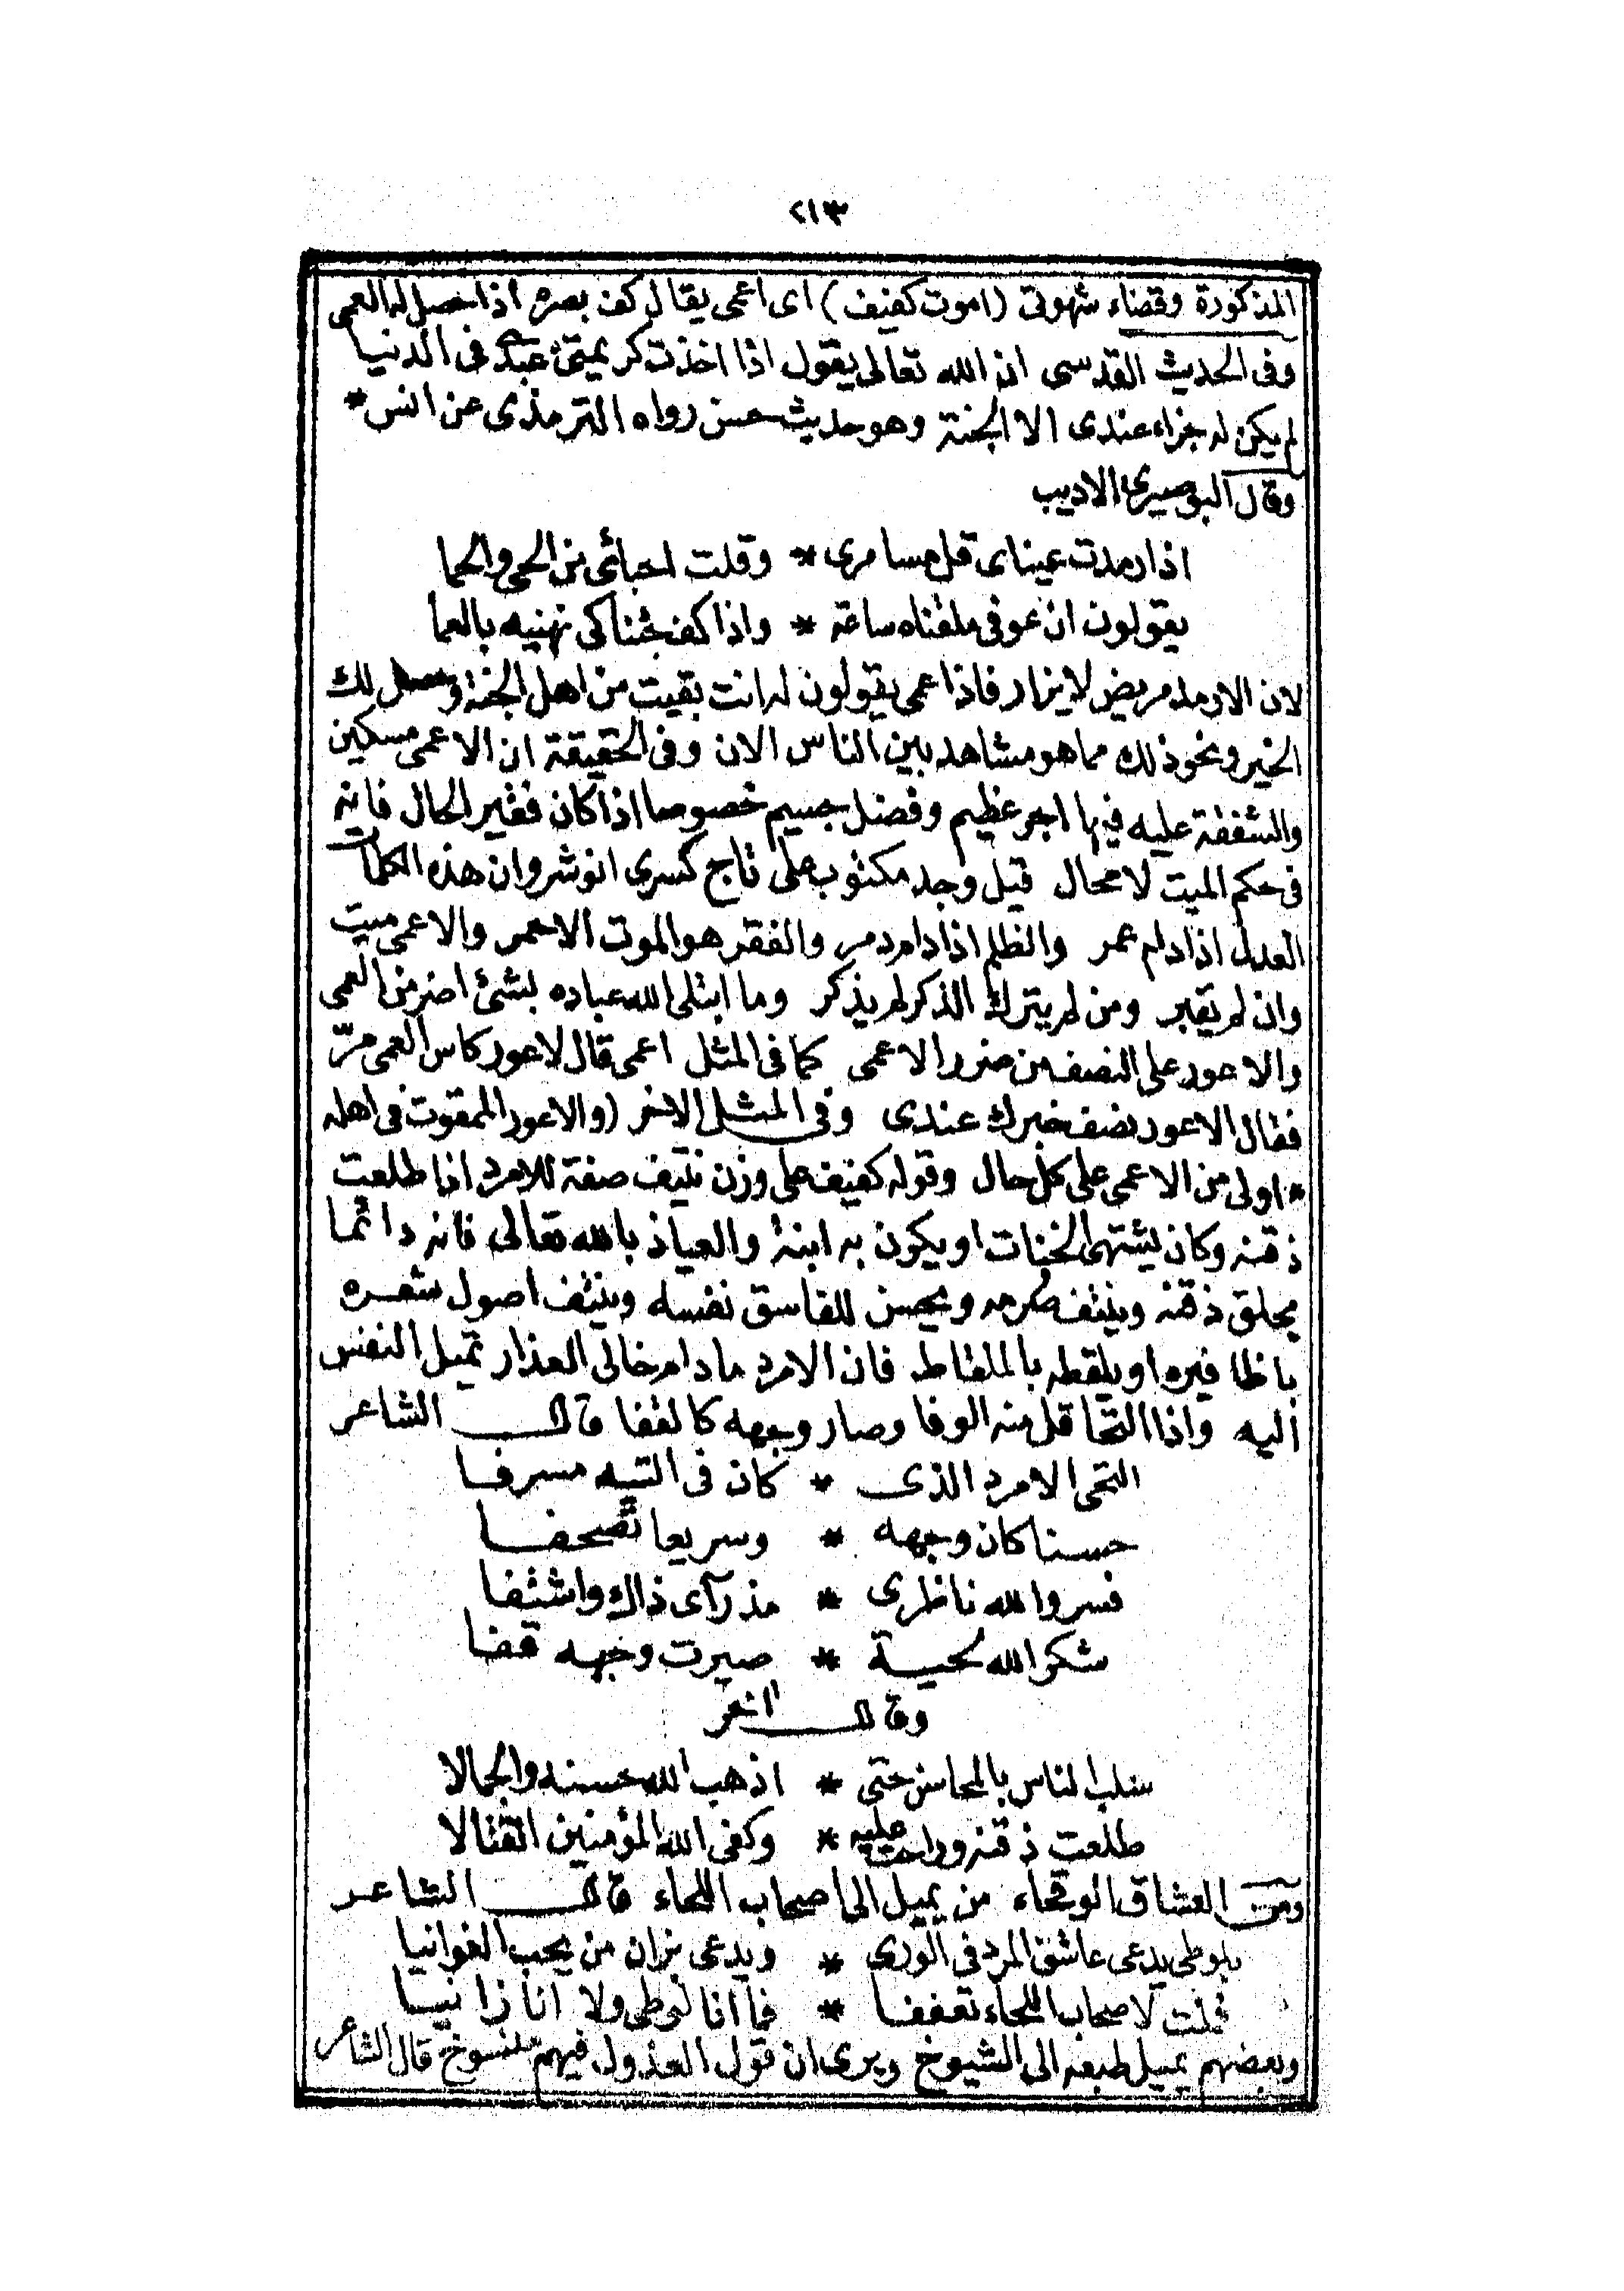 ٢١٣
المذكورة وقضاء شهوتى (اموت كفيف) اى اعمى يقال كف بصره اذا حصل له العمى
وفى الحديث القدسى ان الله تعالى يقول اذا اخذت كريمتى عبدى فى الدنيا
لم يكن له جزاء عندى الا الجنة وهو حديث حسن رواه الترمذى عن انس *
وقال البوصيرى الاديب
اذا رمدت عيناى قل مسامرى * وقلت احبائى من الحى والحما
يقولون ان عوفى ملقناه ساعة * واذا كف جئنا كى نهنيه بالعما
لان الارمد مريض لا يزار فاذا عمى يقولون له انت بقيت من اهل الجنة وحصل لك
الخير ونحو ذلك مما هو مشاهد بين الناس الان وفى الحقيقة ان الاعمى مسكين
والشفقة عليه فيها اجر عظيم وفضل جسيم خصوصا اذا كان فقير الحال فانه
فى حكم الميت لا محال قيل وجد مكتوب على تاج كسرى انوشروان هذه الكلمات
العدل اذا دام عمر والظلم اذا دام دمر والفقر هو الموت الاحمر والاعمى ميت
وان لم يقبر ومن لم يترك الذكر لم يذكر وما ابتلى الله عباده بشئ اضر من العمى
والاعور على النصف من ضرر الاعمى كما فى المثل اعمى قال لاعور كاس العمى مرّ
فقال الاعور نصف خبرك عندى وفى المثل الاخر (والاعور الممقوت فى اهله
* اولى من الاعمى على كل حال وقوله كفيف على وزن نتيف صفة للامرد اذا طلعت
ذقنه وكان يشتهى الخناث او يكون به ابنة والعياذ بالله تعالى فانه دائما
يحلق ذقنه وينتف صرمه ويحسن للفاسق نفسه وينتف اصول شعره
باظافيره او يلقطه بالملقاط فان الامرد ما دام خالى العذار تميل النفس
اليه واذا التحا قل منه الوفا وصار وجهه كالقفا قال الشاعر
التحى الامرد الذى * كان فى التيه مسرفا
حسنا كان وجهه * وسريعا تصحفا
فسر والله ناظرى * مذ رآى ذاك واشتفا
شكر الله لحية * صيرت وجهه قفا
وقال اخر
سلب الناس بالمحاسن حتى * اذهب الله حسنه والجمالا
طلعت ذقنه وراحت عليه * وكفى الله المؤمنين القتالا
ومن العشاق الوقحاء من يميل الى اصحاب اللحاء قال الشاعر
بلوطى يدعى عاشق المرد فى الورى * ويدعى بزان من يحب الغوانيا
فملت لاصحاب اللحاء تعففا * فما انا لوطى ولا انا زانيا
وبعضهم يميل طبعه الى الشيوخ ويرى ان قول العذول فيهم منسوخ قال الشاعر